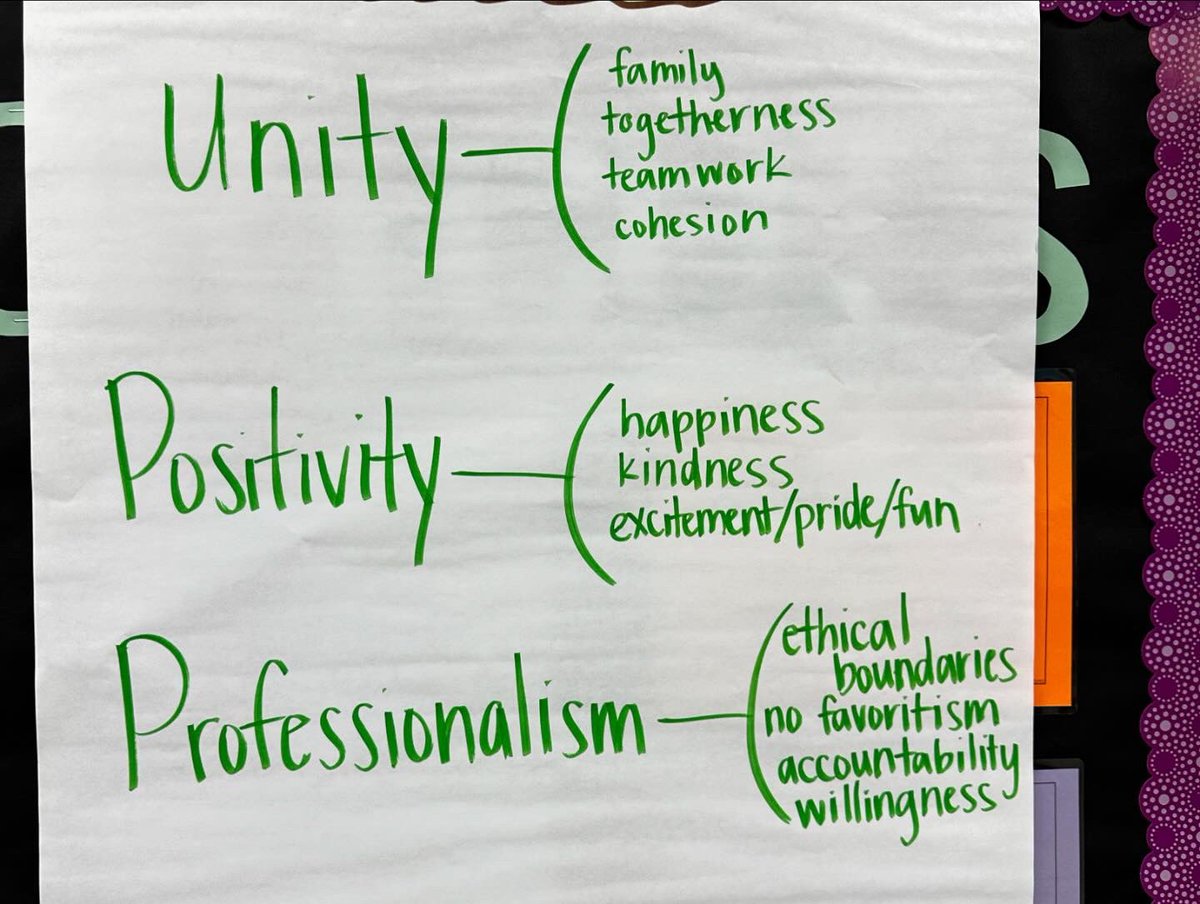 Unity
family
togetherness
teamwork
cohesion
Positivity
happiness
kindness
excitement/pride/fun
Professionalism
ethical
boundaries
no favoritism
accountability
willingness